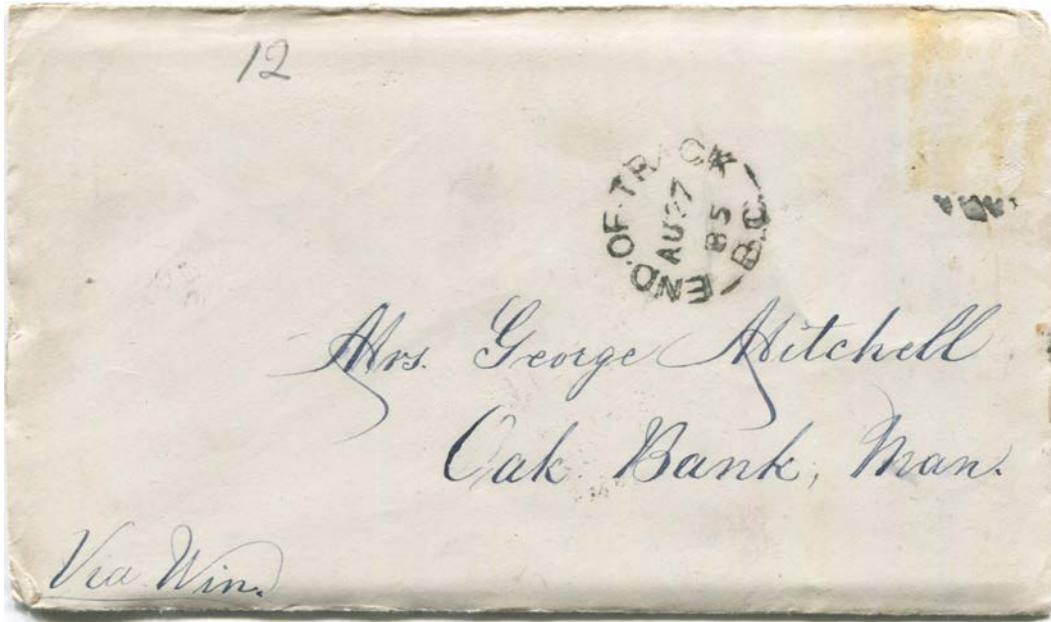 12
END. OF. TRACK
AU 27
85
B.C.
Mrs. George Mitchell
Oak Bank, Man.
Via Win.